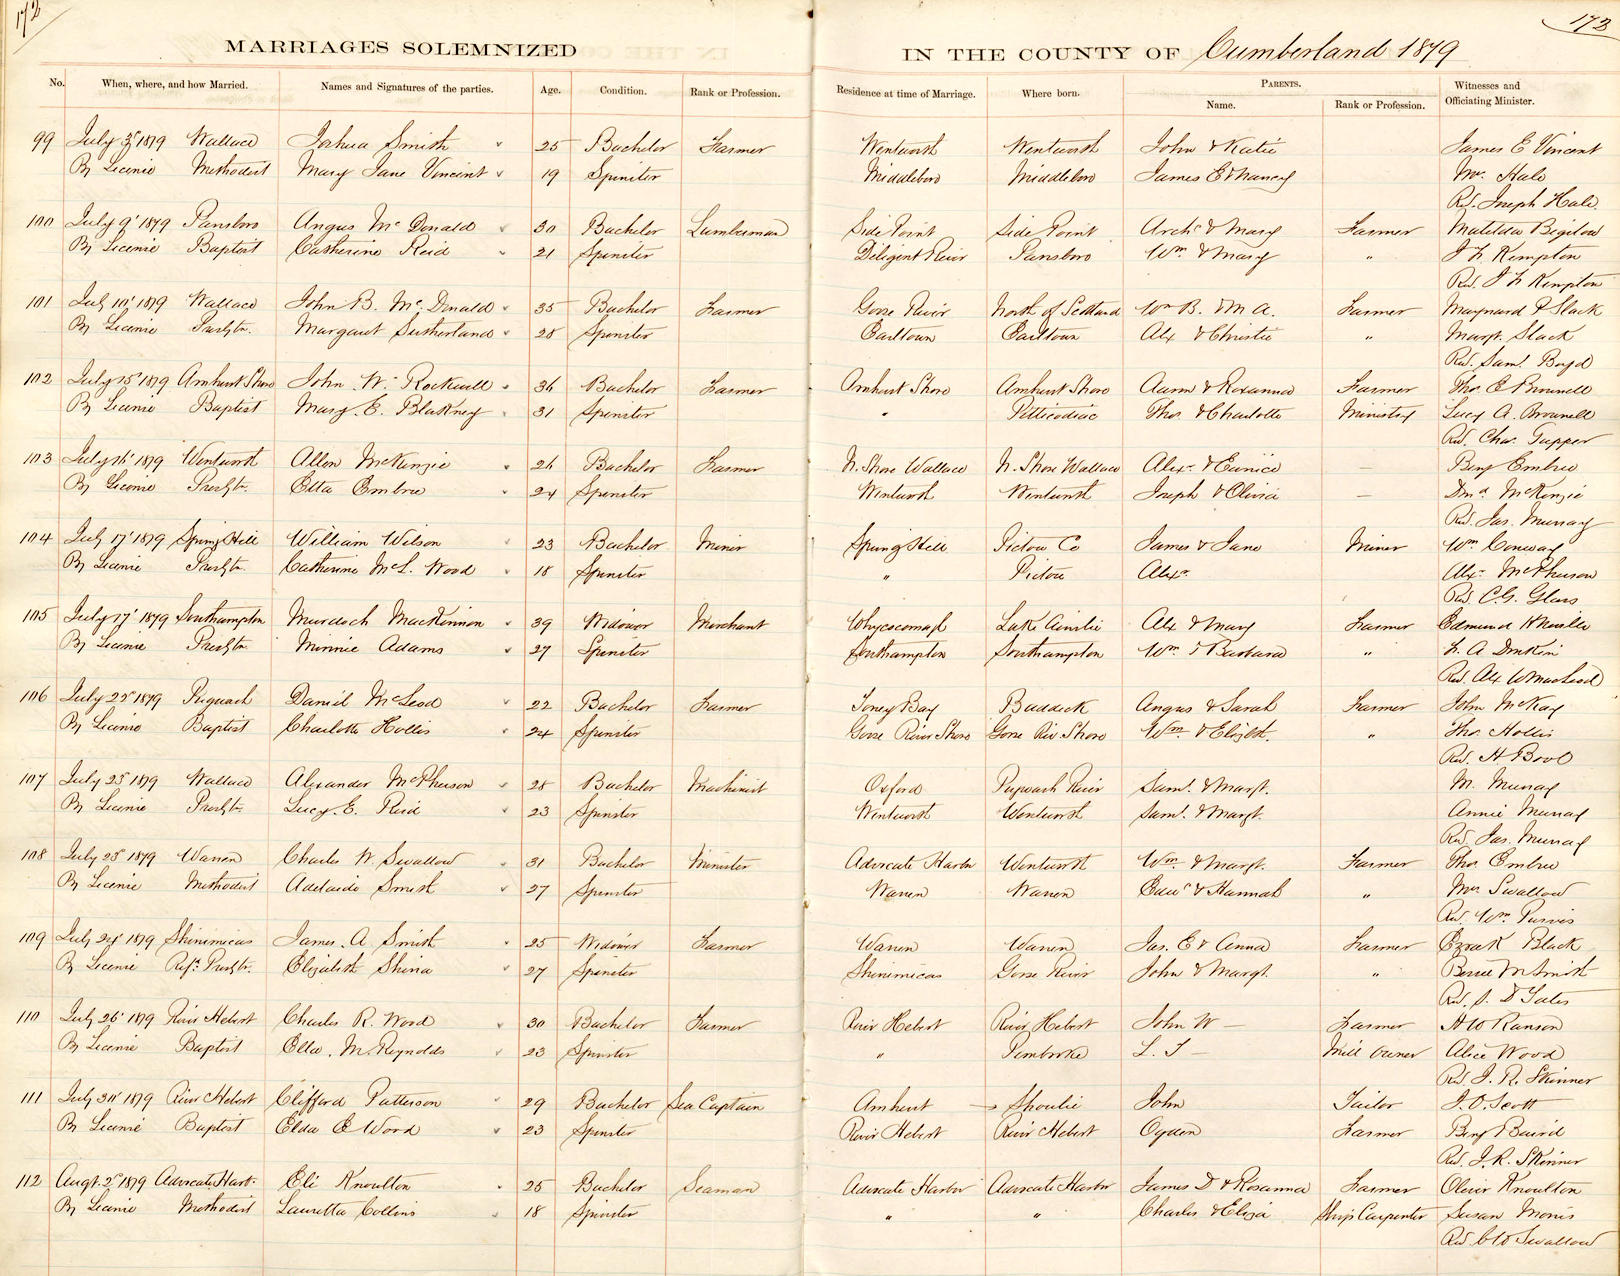 172
173
MARRIAGES SOLEMNIZED IN THE COUNTY OF Cumberland 1879
No. When, where, and how Married. Names and Signatures of the parties. Age. Condition. Rank or Profession. Residence at time of Marriage. Where born. PARENTS. Name. Rank or Profession. Witnesses and Officiating Minister.
99 July 3 1879 Wallace Joshua Smith 25 Bachelor Farmer Wentworth Wentworth John & Katie James E Vincent
By Licence Methodist Mary Jane Vincent 19 Spinster Middleboro Middleboro James E & Nancy Mrs. Hale
Rev. Joseph Hale
100 July 9 1879 Parrsboro Angus McDonald 30 Bachelor Lumberman Side Point Side Point Archd & Mary Farmer Matilda Bigelow
By Licence Baptist Catherine Reid 21 Spinster Diligent River Parrsboro Wm. & Mary " J F. Kempton
Rev. J F. Kempton
101 July 10 1879 Wallace John B. McDonald 35 Bachelor Farmer Goose River North of Scotland Wm B. & M A. Farmer Maynard P Slack
By Licence Presbytn. Margaret Sutherland 28 Spinster Earltown Earltown Alex & Christie " Margt. Slack
Rev. Saml. Boyd
102 July 15 1879 Amherst Shore John W. Rockwell 36 Bachelor Farmer Amherst Shore Amherst Shore Aaron & Roxanna Farmer Thos. E Brownell
By Licence Baptist Mary E. Blakney 31 Spinster " Petticodiac Thos. & Charlotte Ministry Lucy A. Brownell
Rev. Chas. Tupper
103 July 16 1879 Wentworth Allen McKenzie 26 Bachelor Farmer N. Shore Wallace N. Shore Wallace Alexr. & Eunice — Benj Embree
By Licence Presbytn. Etta Embree 24 Spinster Wentworth Wentworth Joseph & Olivia — McKenzie
Rev. Jas. Murray
104 July 17 1879 Spring Hill William Wilson 23 Bachelor Miner Spring Hill Pictou Co James & Jane Miner Wm. Conway
By Licence Presbytn. Catherine McL. Wood 18 Spinster " Pictou Alexr. Alexr. McPherson
Rev. C.G. Glass
105 July 17 1879 Southampton Murdoch MacKinnon 39 Widower Merchant Whycocomagh Lake Ainslie Alex & Mary Farmer Edmund
By Licence Presbytn. Minnie Adams 27 Spinster Southampton Southampton Wm. & Barbara " A
Rev. Alex W MacLeod
106 July 22 1879 Pugwash Daniel McLeod 22 Bachelor Farmer Toney Bay Baddeck Angus & Sarah Farmer John McKay
By Licence Baptist Charlotte Hollis 24 Spinster Goose River Shore Goose Riv Shore Wm. & Elizbth. " Thos. Hollis
Rev. H Bool
107 July 23 1879 Wallace Alexander McPherson 28 Bachelor Machinist Oxford Pugwash River Saml. & Margt. M. Murray
By Licence Presbytn. Lucy E. Reid 23 Spinster Wentworth Wentworth Saml. & Margt. Annie Murray
Rev. Jas. Murray
108 July 23 1879 Warren Charles W. Swallow 31 Bachelor Minister Advocate Harbor Wentworth Wm. & Margt. Farmer Thos. Embree
By Licence Methodist Adelaide Smith 27 Spinster Warren Warren Edwd & Hannah " Mrs Swallow
Rev. Wm. Purvis
109 July 24 1879 Shinimicas James A Smith 25 Widower Farmer Warren Warren Jas. E & Anna Farmer Black
By Licence Refd. Presbytn. Elizabeth 27 Spinster Shinimicas Goose River John & Margt. " M Smith
Rev. S. D Yates
110 July 26 1879 River Hebert Charles R. Wood 30 Bachelor Farmer River Hebert River Hebert John W — Farmer H W Ranson
By Licence Baptist Ella M. Reynolds 23 Spinster " Pembroke L. T — Mill Owner Alice Wood
Rev. J. R. Skinner
111 July 30 1879 River Hebert Clifford Patterson 29 Bachelor Sea Captain Amherst Shoulie John Tailor J. O. Scott
By Licence Baptist Elda E Wood 23 Spinster River Hebert River Hebert Ogden Farmer Benj Baird
Rev. J. R. Skinner
112 Augt. 2 1879 Advocate Harb. Eli Knoulton 25 Bachelor Seaman Advocate Harbor Advocate Harbor James D & Rosanna Farmer Oliver Knoulton
By Licence Methodist Lauretta Collins 18 Spinster " " Charles & Eliza Ship Carpenter Susan Morris
Rev. C W Swallow